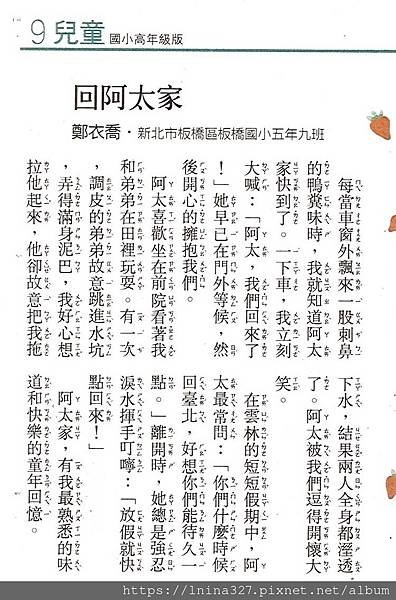 9 兒童 國小高年級版
回阿太家
鄭衣喬・新北市板橋區板橋國小五年九班
每當車窗外飄來一股刺鼻
的鴨糞味時，我就知道阿太
家快到了。一下車，我立刻
大喊：「阿太，我們回來了
！」她早已在門外等候，然
後開心的擁抱我們。
阿太喜歡坐在前院看著我
和弟弟在田裡玩耍。有一次
，調皮的弟弟故意跳進水坑
，弄得滿身泥巴，我好心想
拉他起來，他卻故意把我拖
下水，結果兩人全身都溼透
了。阿太被我們逗得開懷大
笑。
在雲林的短短假期中，阿
太最常問：「你們什麼時候
回臺北，好想你們能待久一
點。」離開時，她總是強忍
淚水揮手叮嚀：「放假就快
點回來！」
阿太家，有我最熟悉的味
道和快樂的童年回憶。
https://lnina327.pixnet.net/album